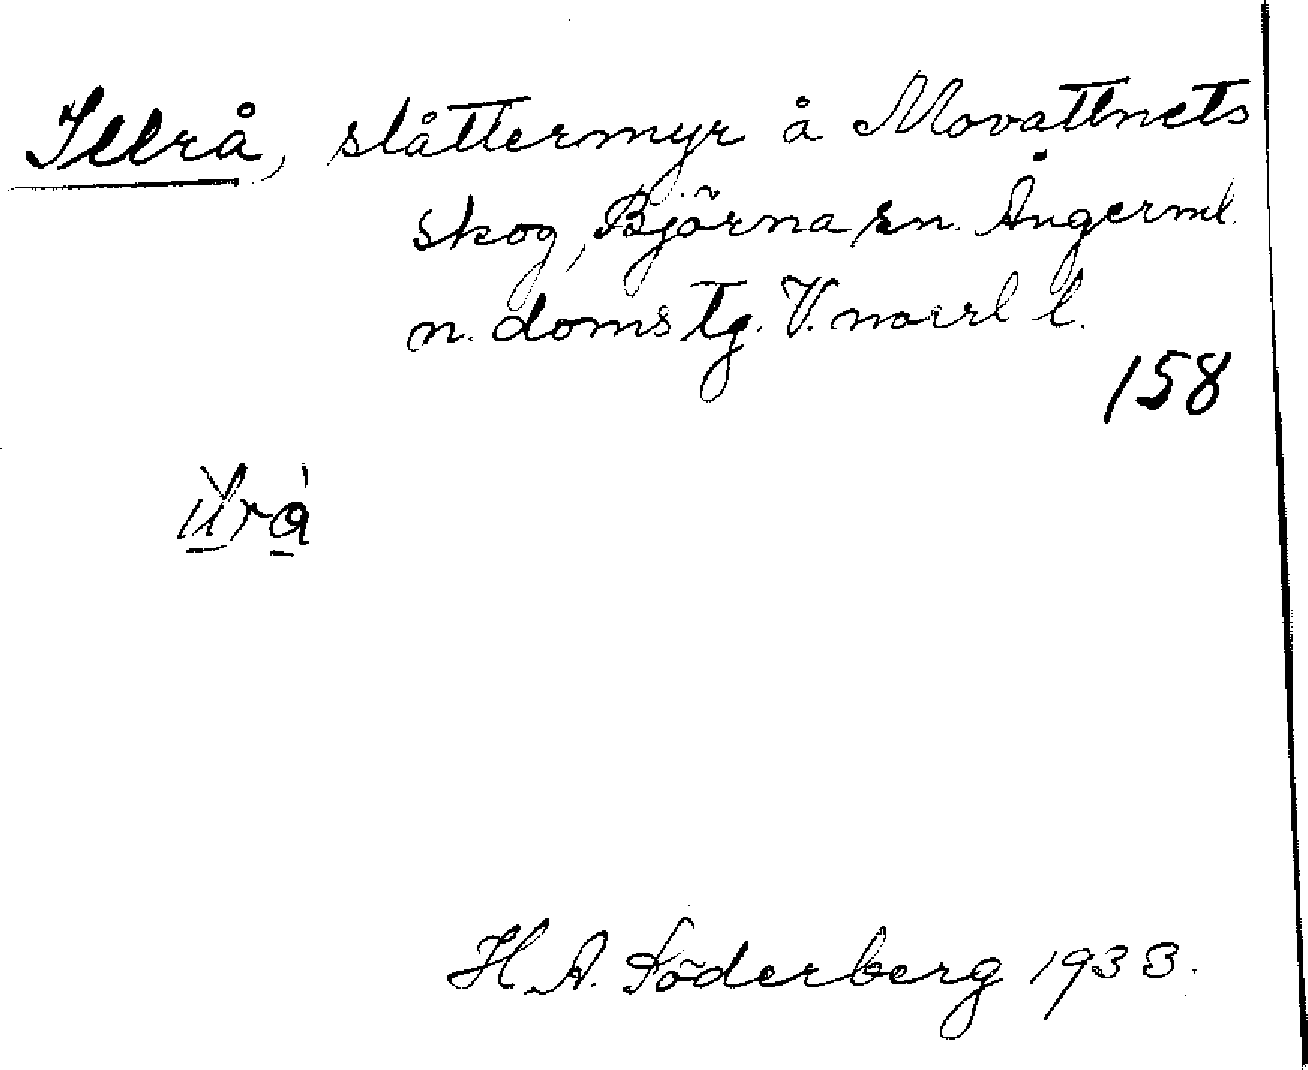 Illrå, slåttermyr å Movattnets
skog, Björna sn. Ångerml.
n. doms tg. V. norrl l.
158
H. A. Söderberg 1933.